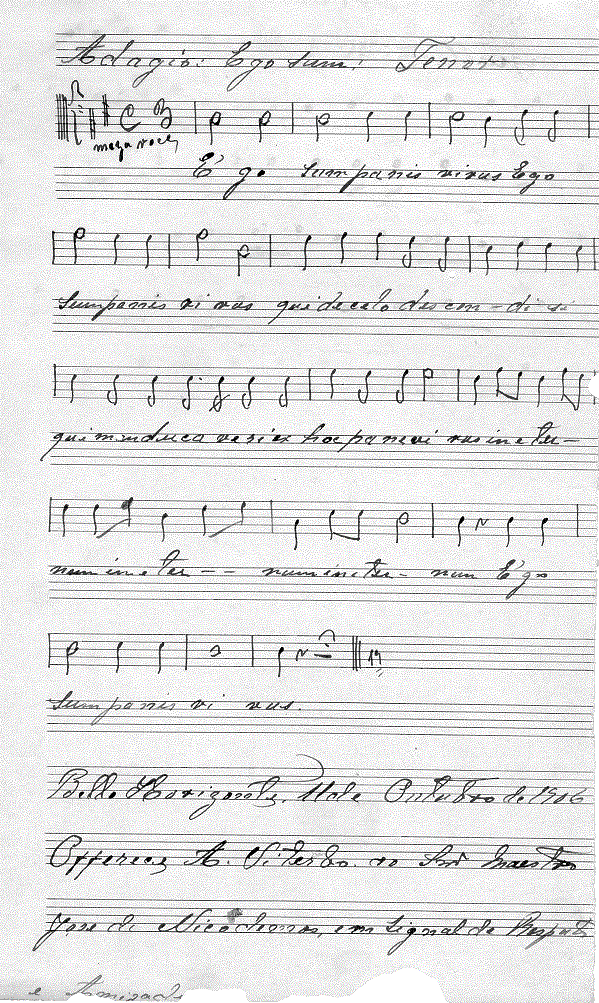 Adagio: Ego sum: Tenor
C 3
meza voce
E' go sum panis vivus Ego
sum panis vi vus qui de celo descen-di si
qui manduca veri ex hoc pane vi vus in e ter-
num in e ter-- num in e ter- num E'go
sum panis vi vus.
19
Bello Horizonte, 11 de Outubro de 1906
Offerece A. Viterbo. ao Snr Maestro
Jose di Nicodemos, em signal de Respeito
e Amizade